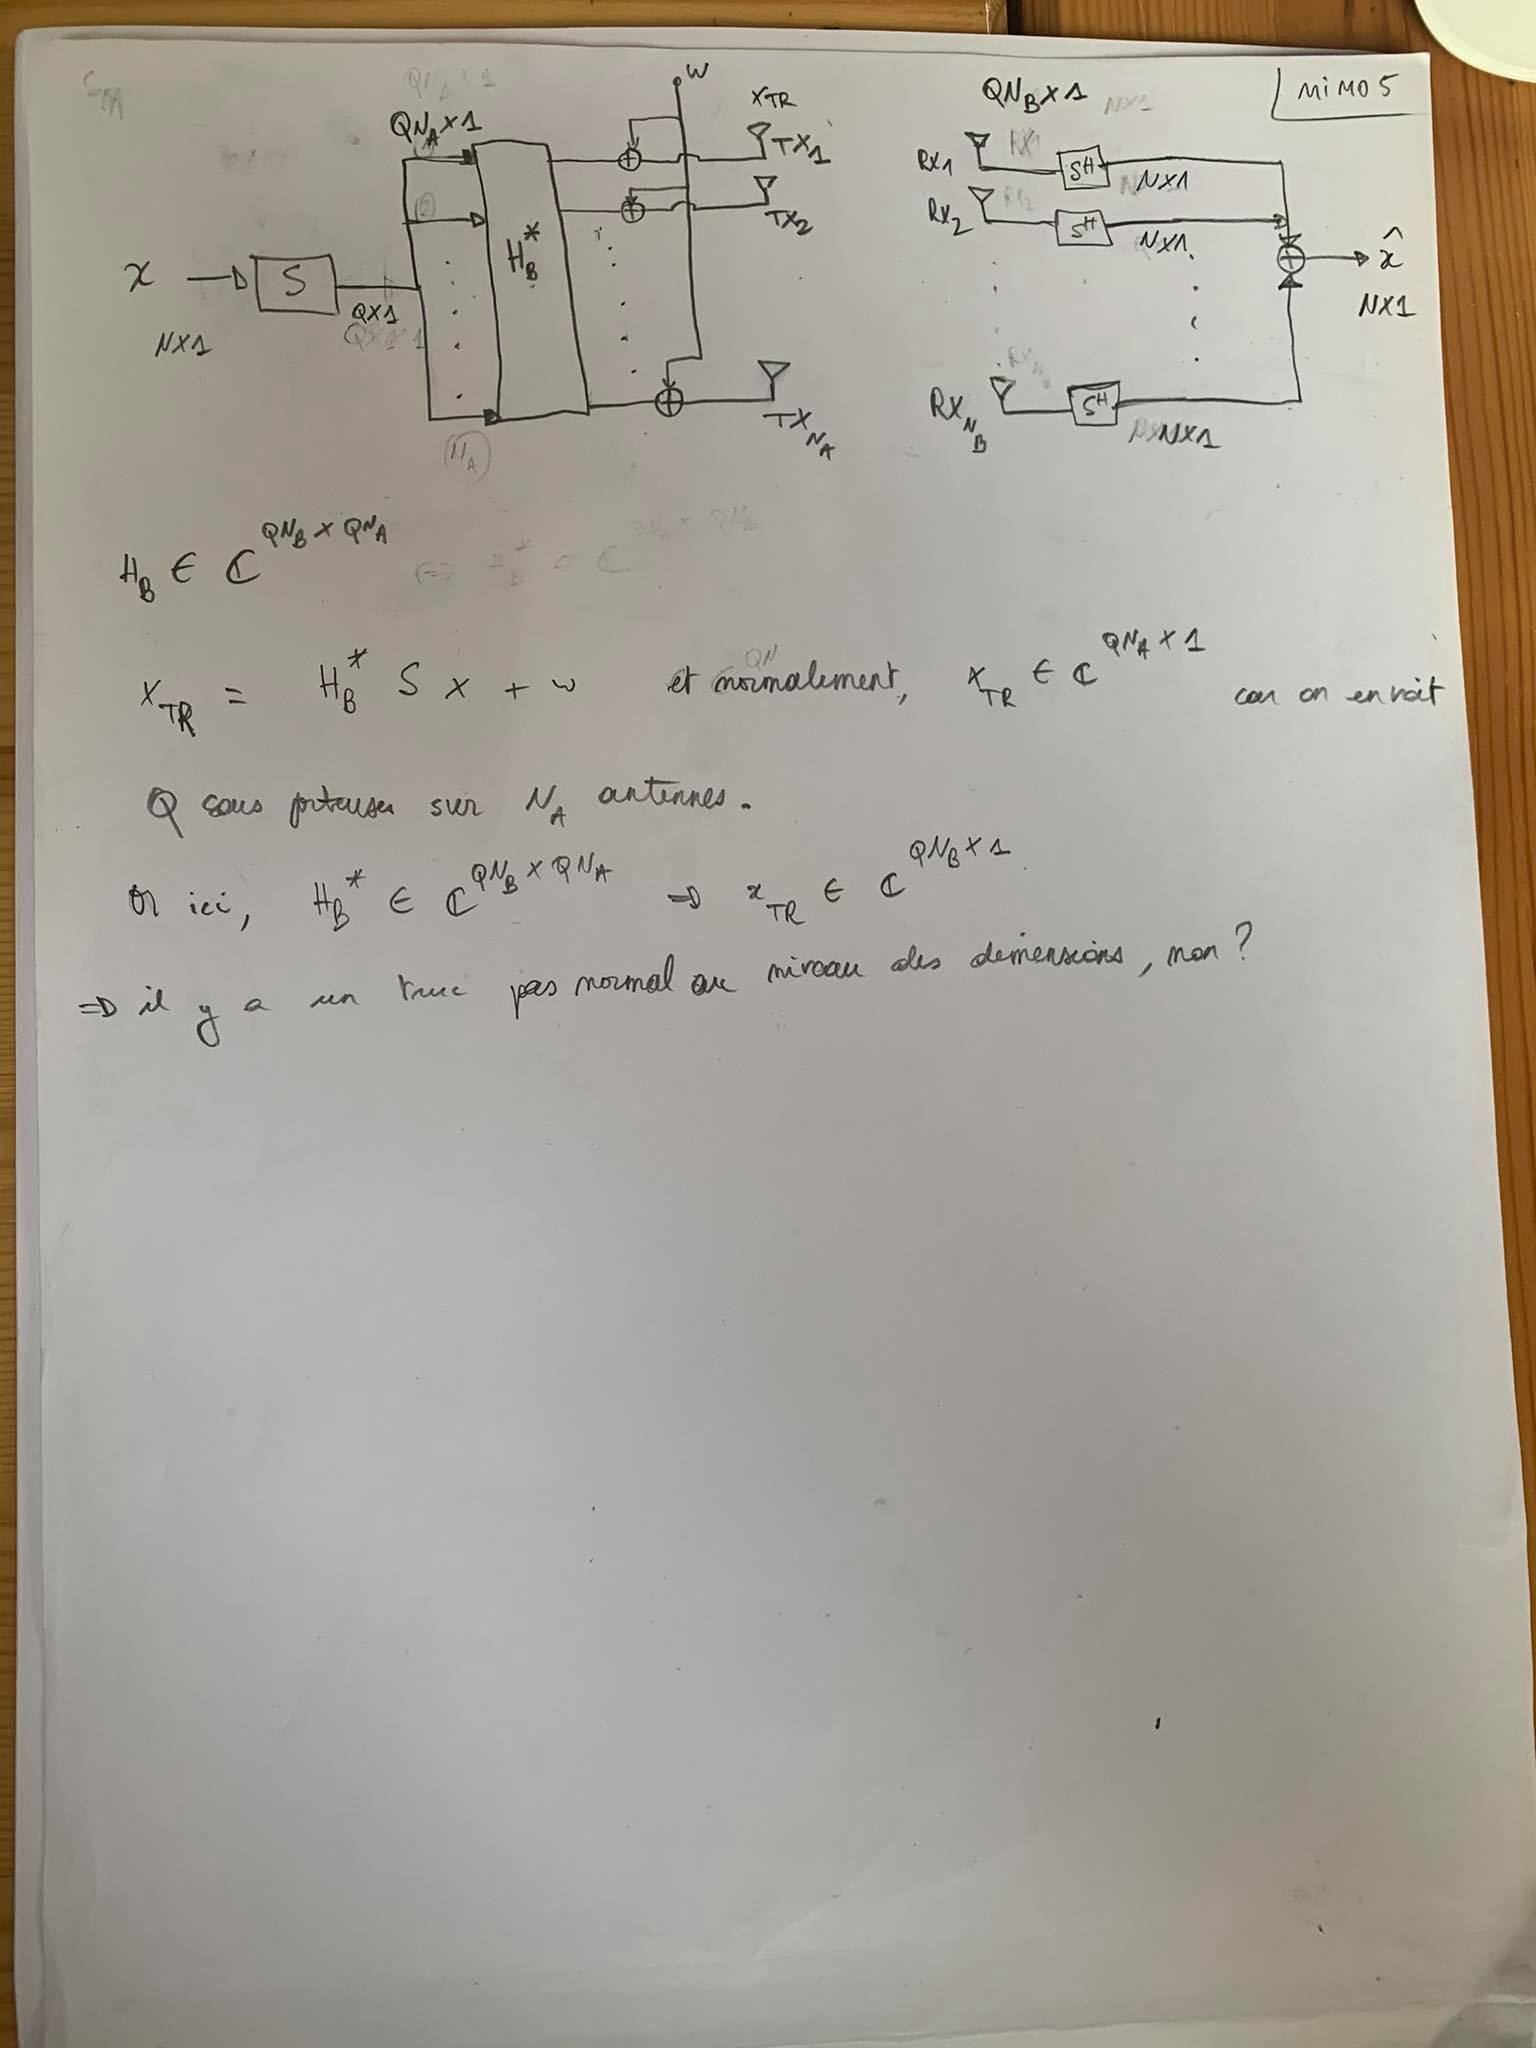 MIMO 5
W
QN_A × 1
X_TR
TX_1
TX_2
TX_{N_A}
x
N×1
S
Q×1
H_B^*
QN_B × 1
RX_1
RX_2
RX_{N_B}
S^H
N×1
S^H
N×1
S^H
N×1
x̂
N×1
H_B ∈ ℂ^{QN_B × QN_A}
X_TR = H_B^* S x + w et normalement, x_TR ∈ ℂ^{QN_A × 1} car on envoit
Q sous porteuses sur N_A antennes.
Or ici, H_B^* ∈ ℂ^{QN_B × QN_A} ⇒ x_TR ∈ ℂ^{QN_B × 1}
⇒ il y a un truc pas normal au niveau des dimensions, non ?